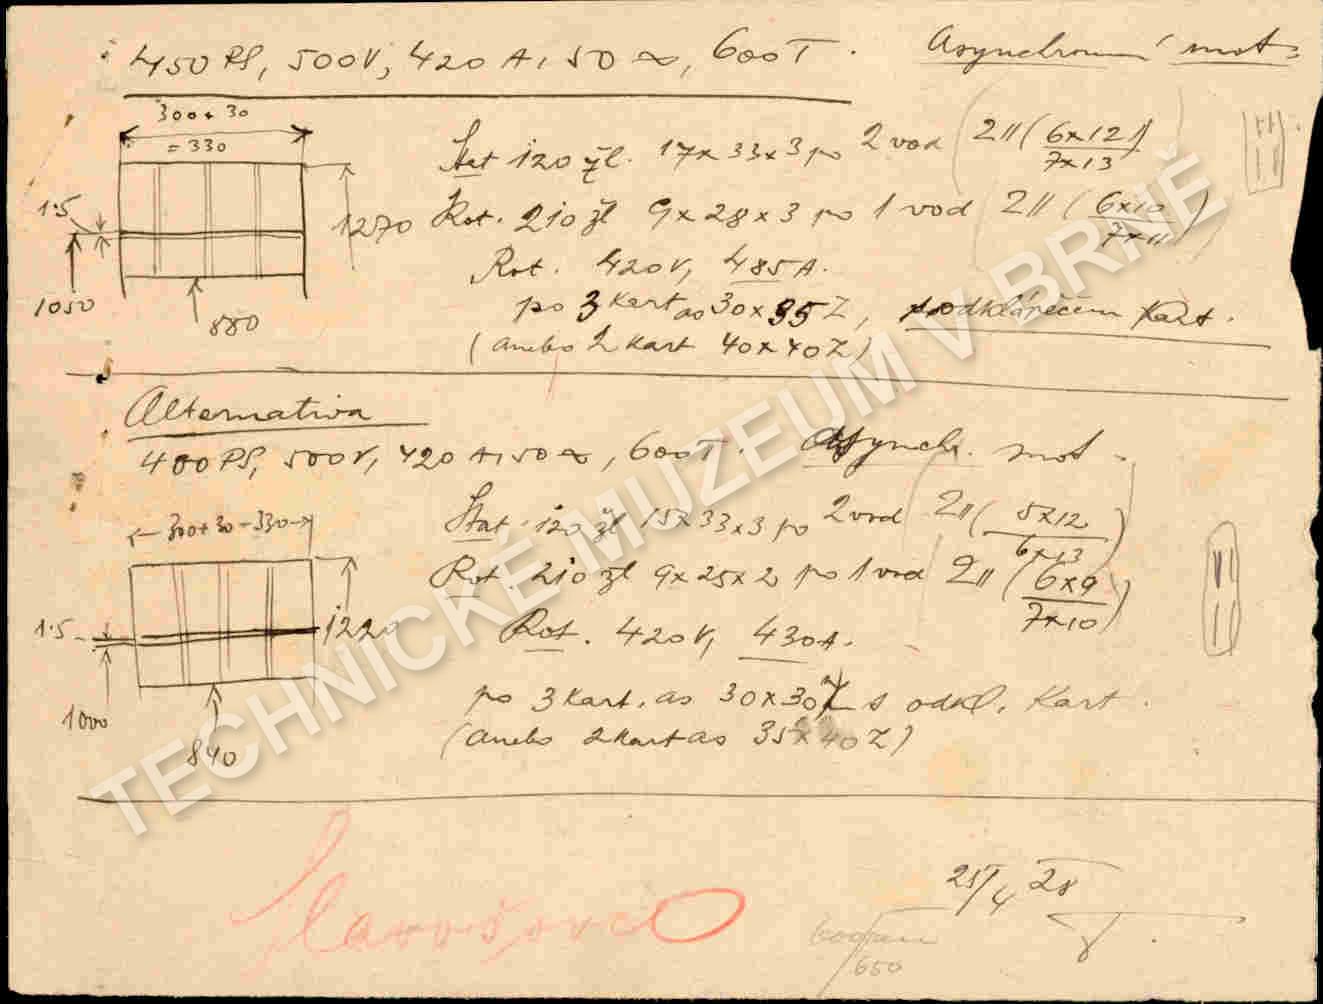 450 PS, 500V, 420 A, 50 ∾, 600T. Asynchronní mot.
300+30
= 330
1.5
1270
1050
880
Stat 120 žl. 17x33x3 po 2 vod (2II(6x12/7x13)
Rot. 210 žl 9x28x3 po 1 vod (2II(6x10/7x11))
Rot. 420V, 485A.
po 3 Kart as 30x35Z, Kart.
(anebo 2 Kart 40x40Z)
Alternativa
400 PS, 500V, 420 A, 50 ∾, 600T. Asynchr. mot.
300+30-330
1.5
1220
1000
840
Stat. 120 žl 15x33x3 po 2 vod (2II(5x12/6x13))
Rot. 210 žl 9x25x2 po 1 vod (2II(6x9/7x10))
Rot. 420V, 430A.
po 3 Kart. as 30x30Z s odkl. Kart.
(anebo 2 Kart as 35x40Z)
Slavošovce
25/4 28
650
TECHNICKÉ MUZEUM V BRNĚ